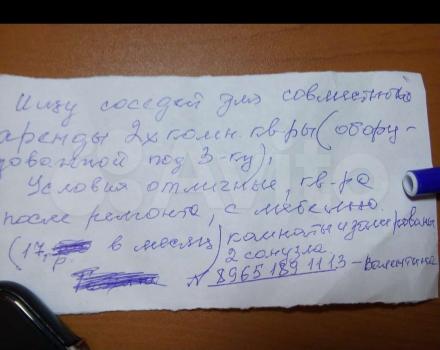 Ищу соседей для совместной
аренды 2х комн. кв-ры (обору-
дованной под 3-ку),
Условия отличные, кв-ра
после ремонта, с мебелью.
(17, р. в месяц) комнаты изолированы
2 санузла
N 8965 189 11 13 - Валентина
Avito